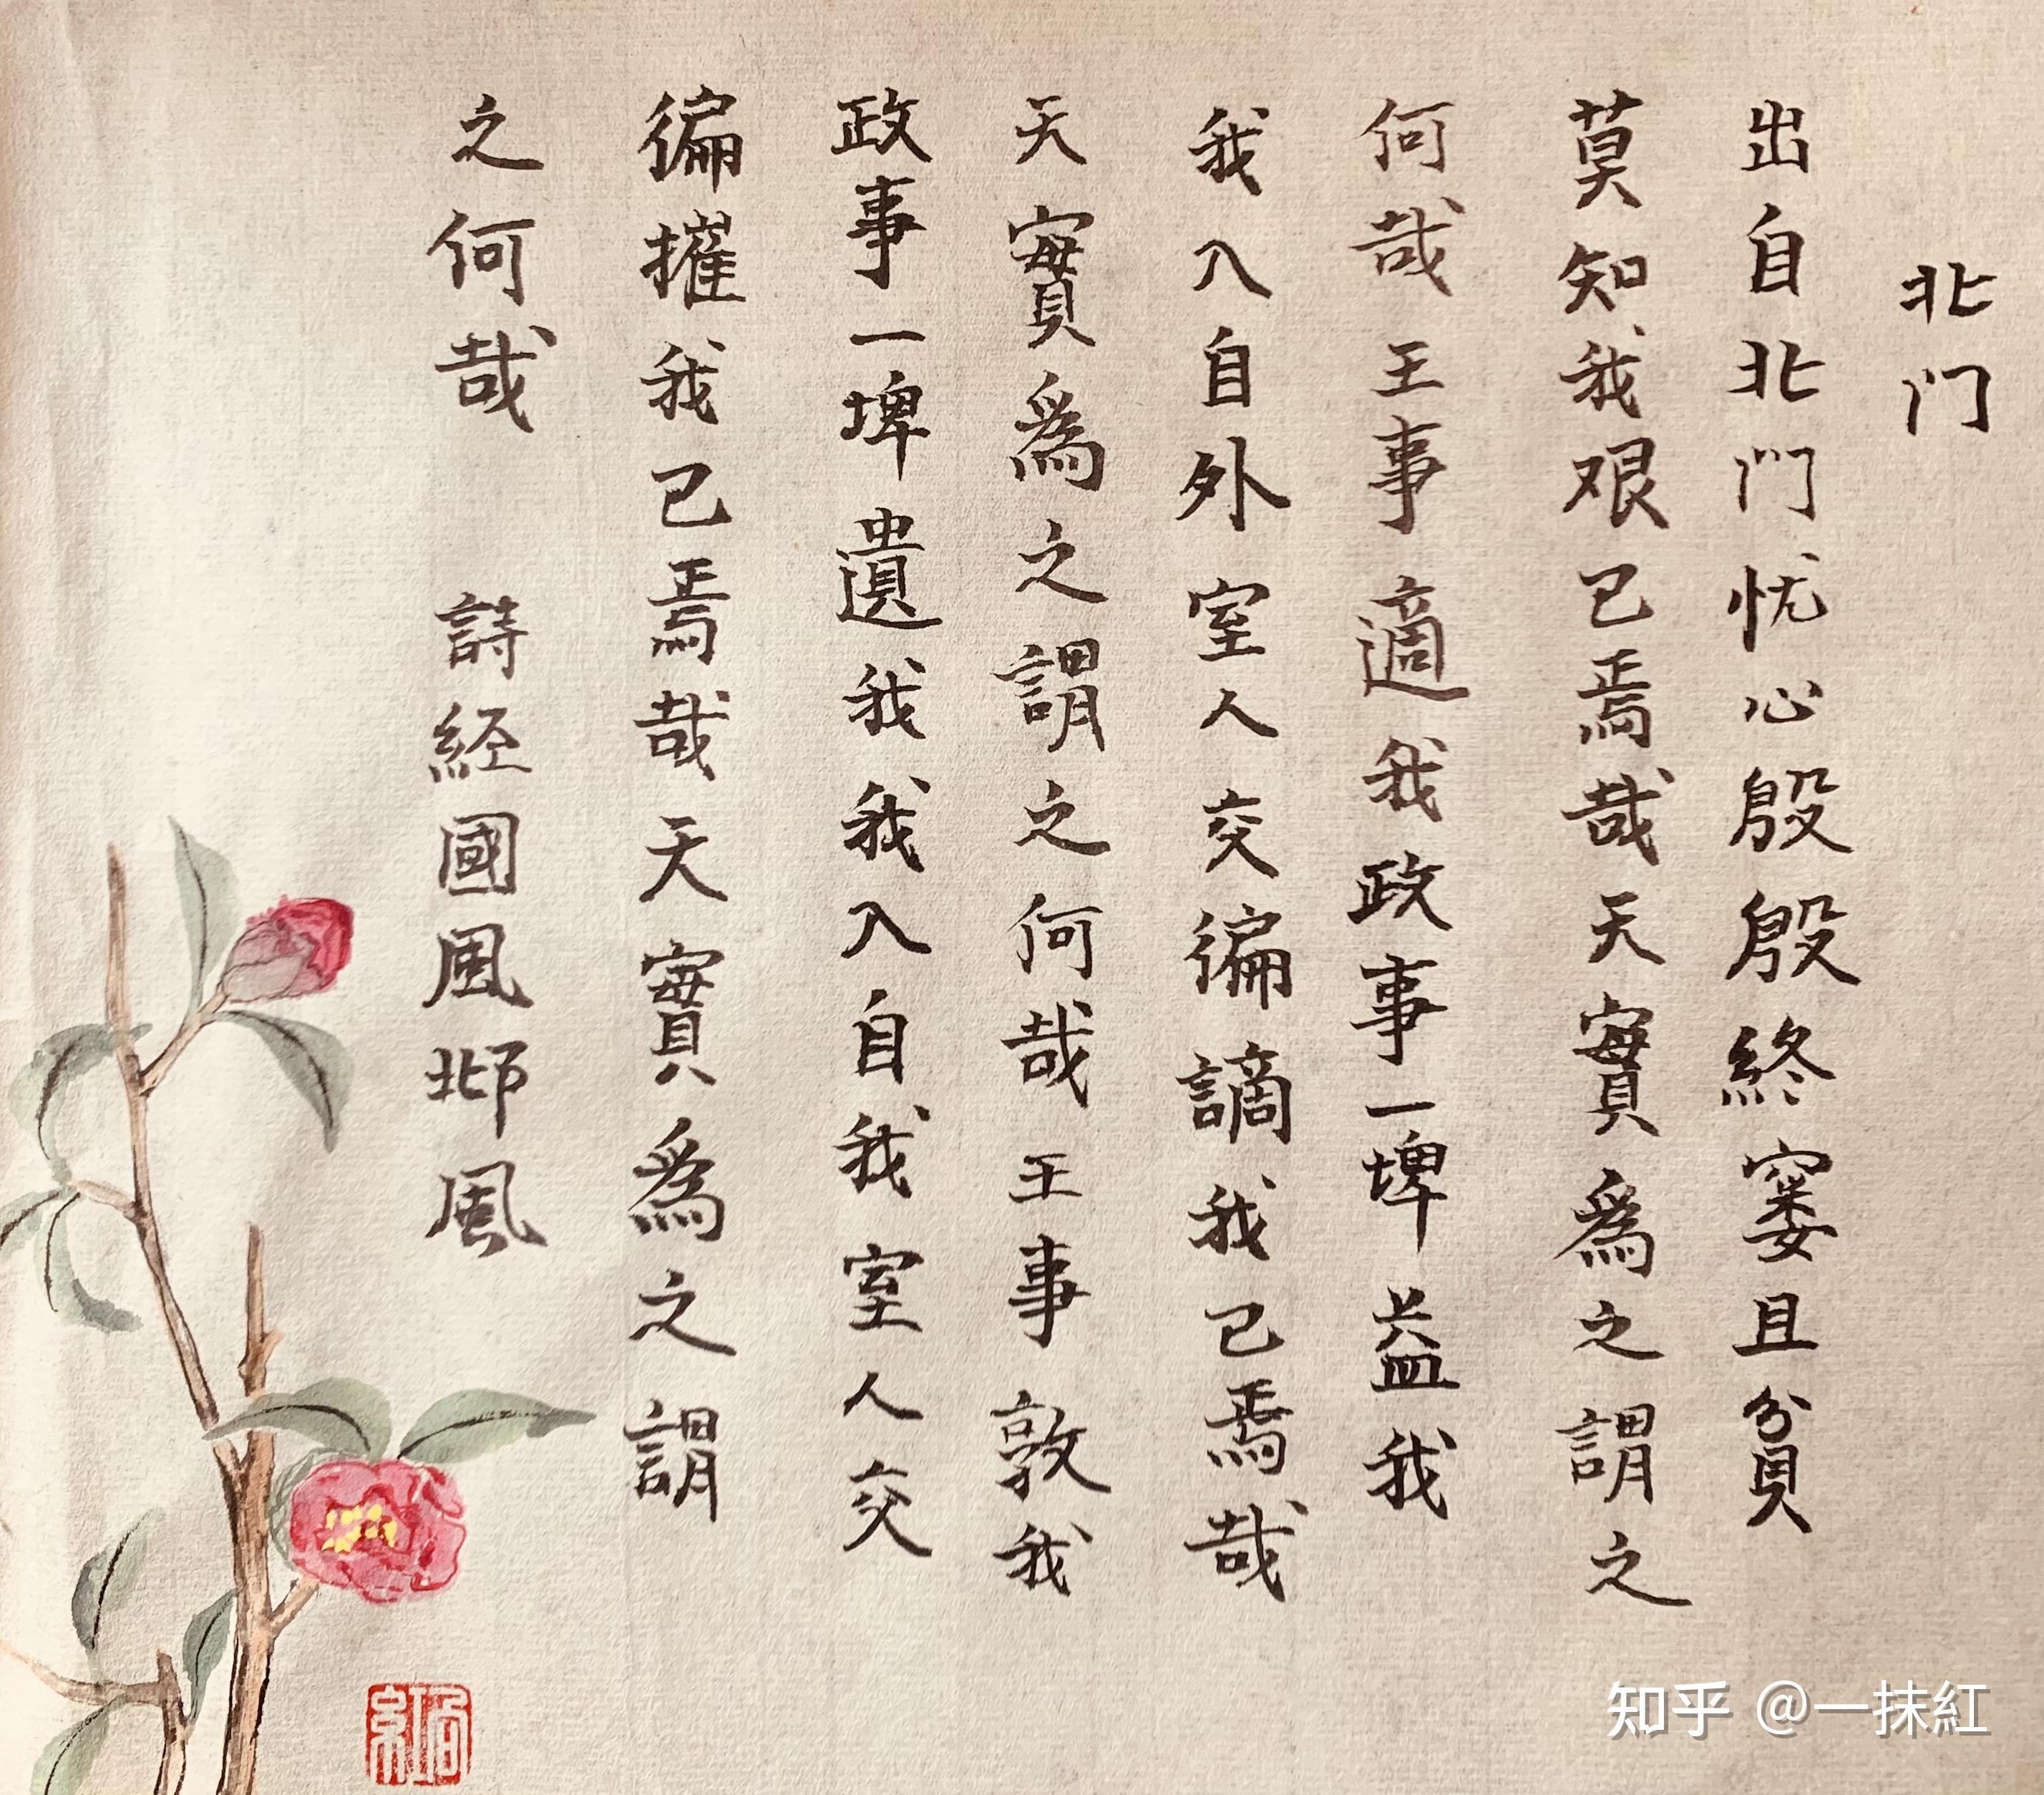 北门
出自北門忧心殷殷終窶且貧
莫知我艰已焉哉天實為之謂之
何哉王事適我政事一埤益我
我入自外室人交徧謫我已焉哉
天實為之謂之何哉王事敦我
政事一埤遺我我入自我室人交
徧摧我已焉哉天實為之謂
之何哉 詩経國風邶風
知乎 @一抹紅